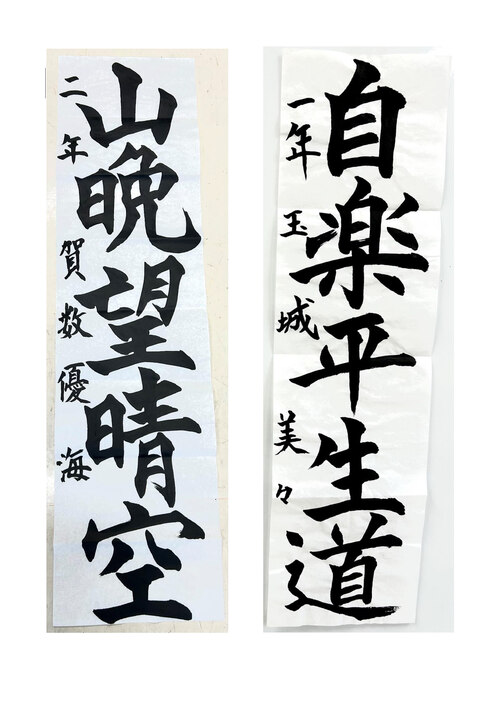 自楽平生道
一年 玉城美々
山晩望晴空
二年 賀数優海